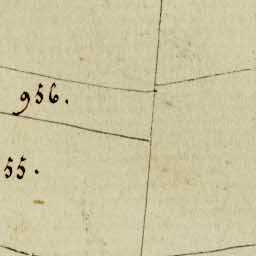 956.
55.